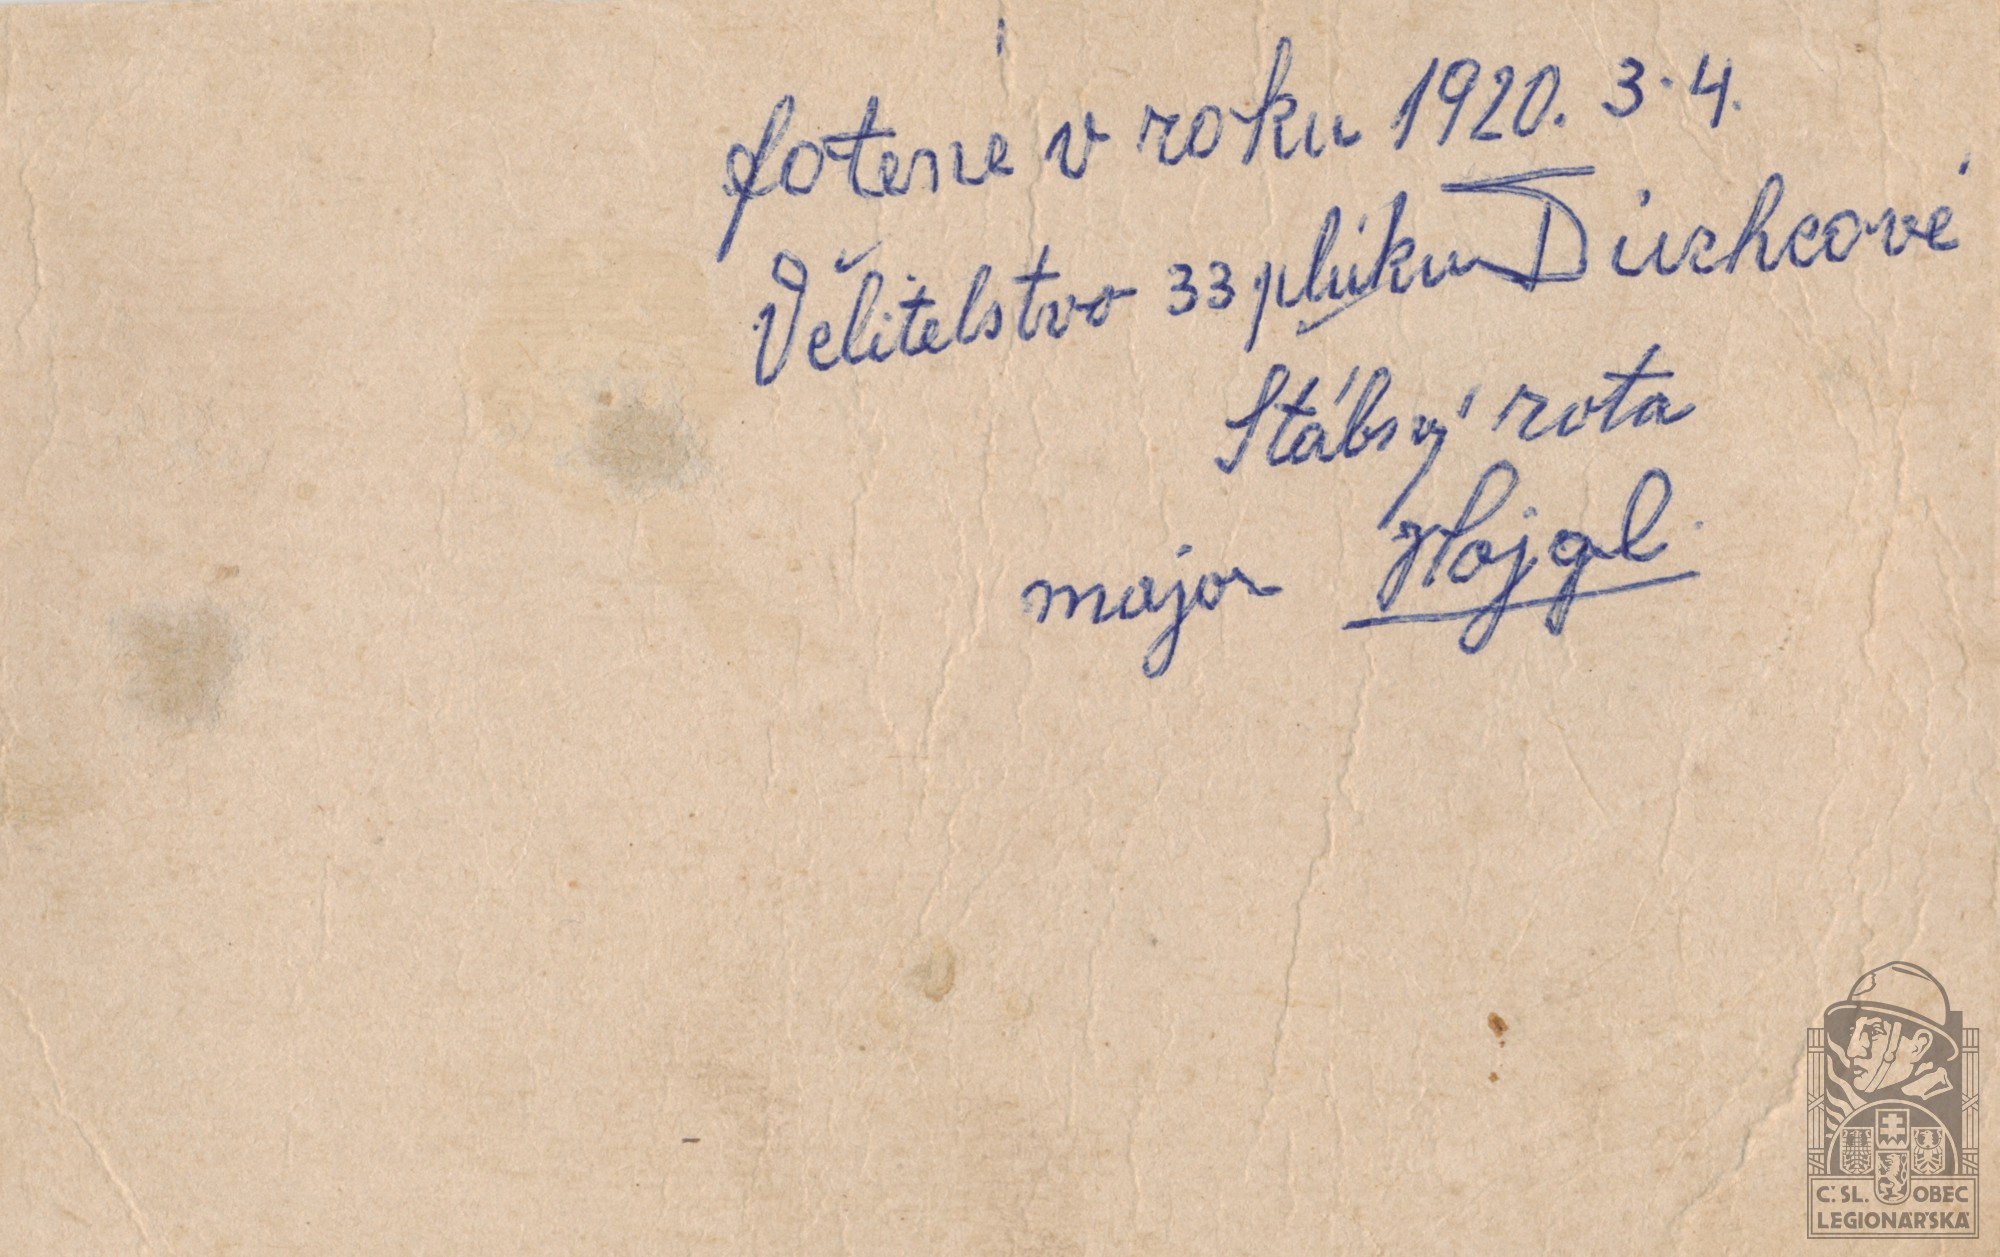 fotené v roku 1920. 3.4.
Velitelstvo 33 pluku Duchcové
Stábný rota
major Hojgl.
C.SL. OBEC
LEGIONÁŘSKÁ